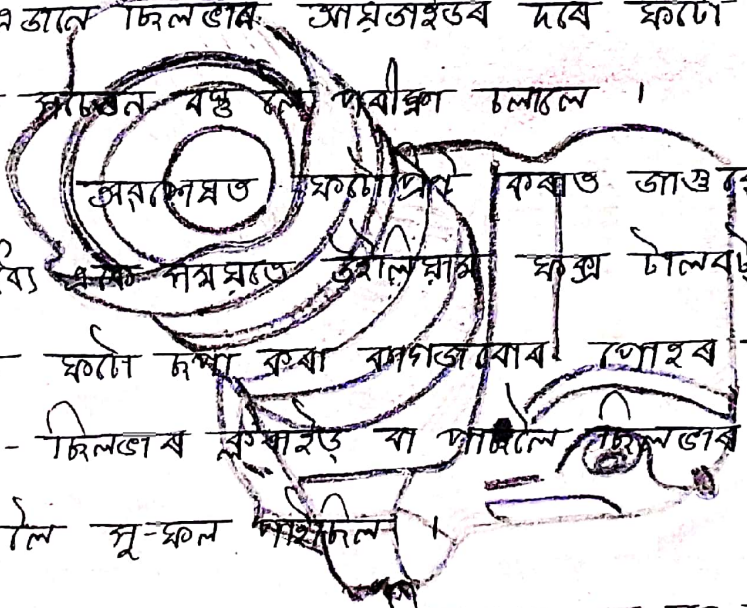 এজনে ছিলভাৰ আয়ডাইডৰ দৰে ফটো
সচেতন বস্তু লৈ পৰীক্ষা চলালে ।
অৱশেষত ফটোপ্ৰিণ্ট কৰাত
একে সময়তে উইলিয়াম ফক্স টালবট
ফটো চপা কৰা কাগজবোৰ পোহৰ
- ছিলভাৰ ক্লৰাইড্ বা পাছলৈ ছিলভাৰ
লৈ সু-ফল পাইছিল ।